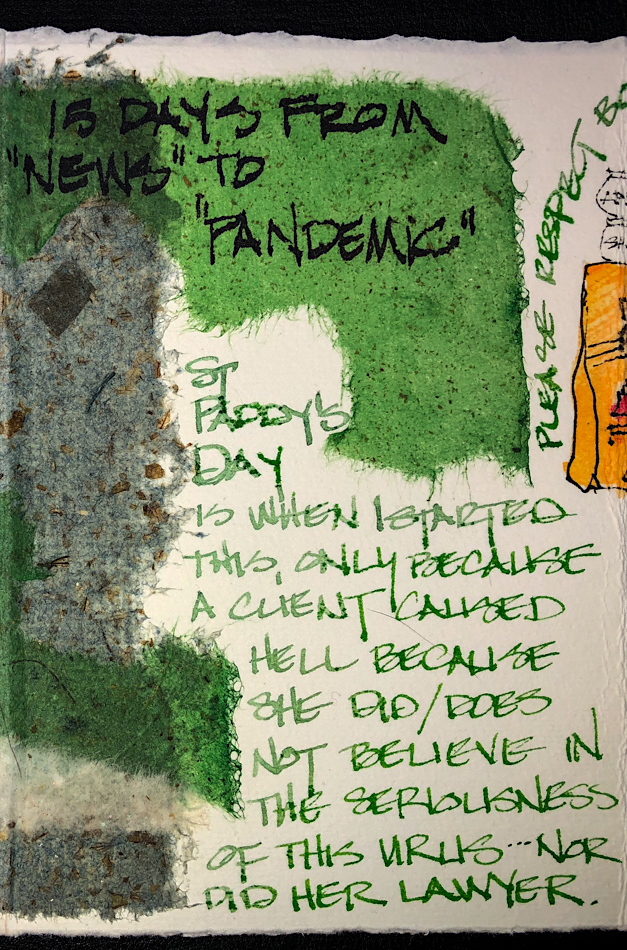 15 DAYS FROM
"NEWS" TO
"PANDEMIC"
ST
PADDY'S
DAY
IS WHEN I STARTED
THIS, ONLY BECAUSE
A CLIENT CAUSED
HELL BECAUSE
SHE DID/DOES
NOT BELIEVE IN
THE SERIOUSNESS
OF THIS VIRUS...NOR
DID HER LAWYER.
PLEASE RESPECT